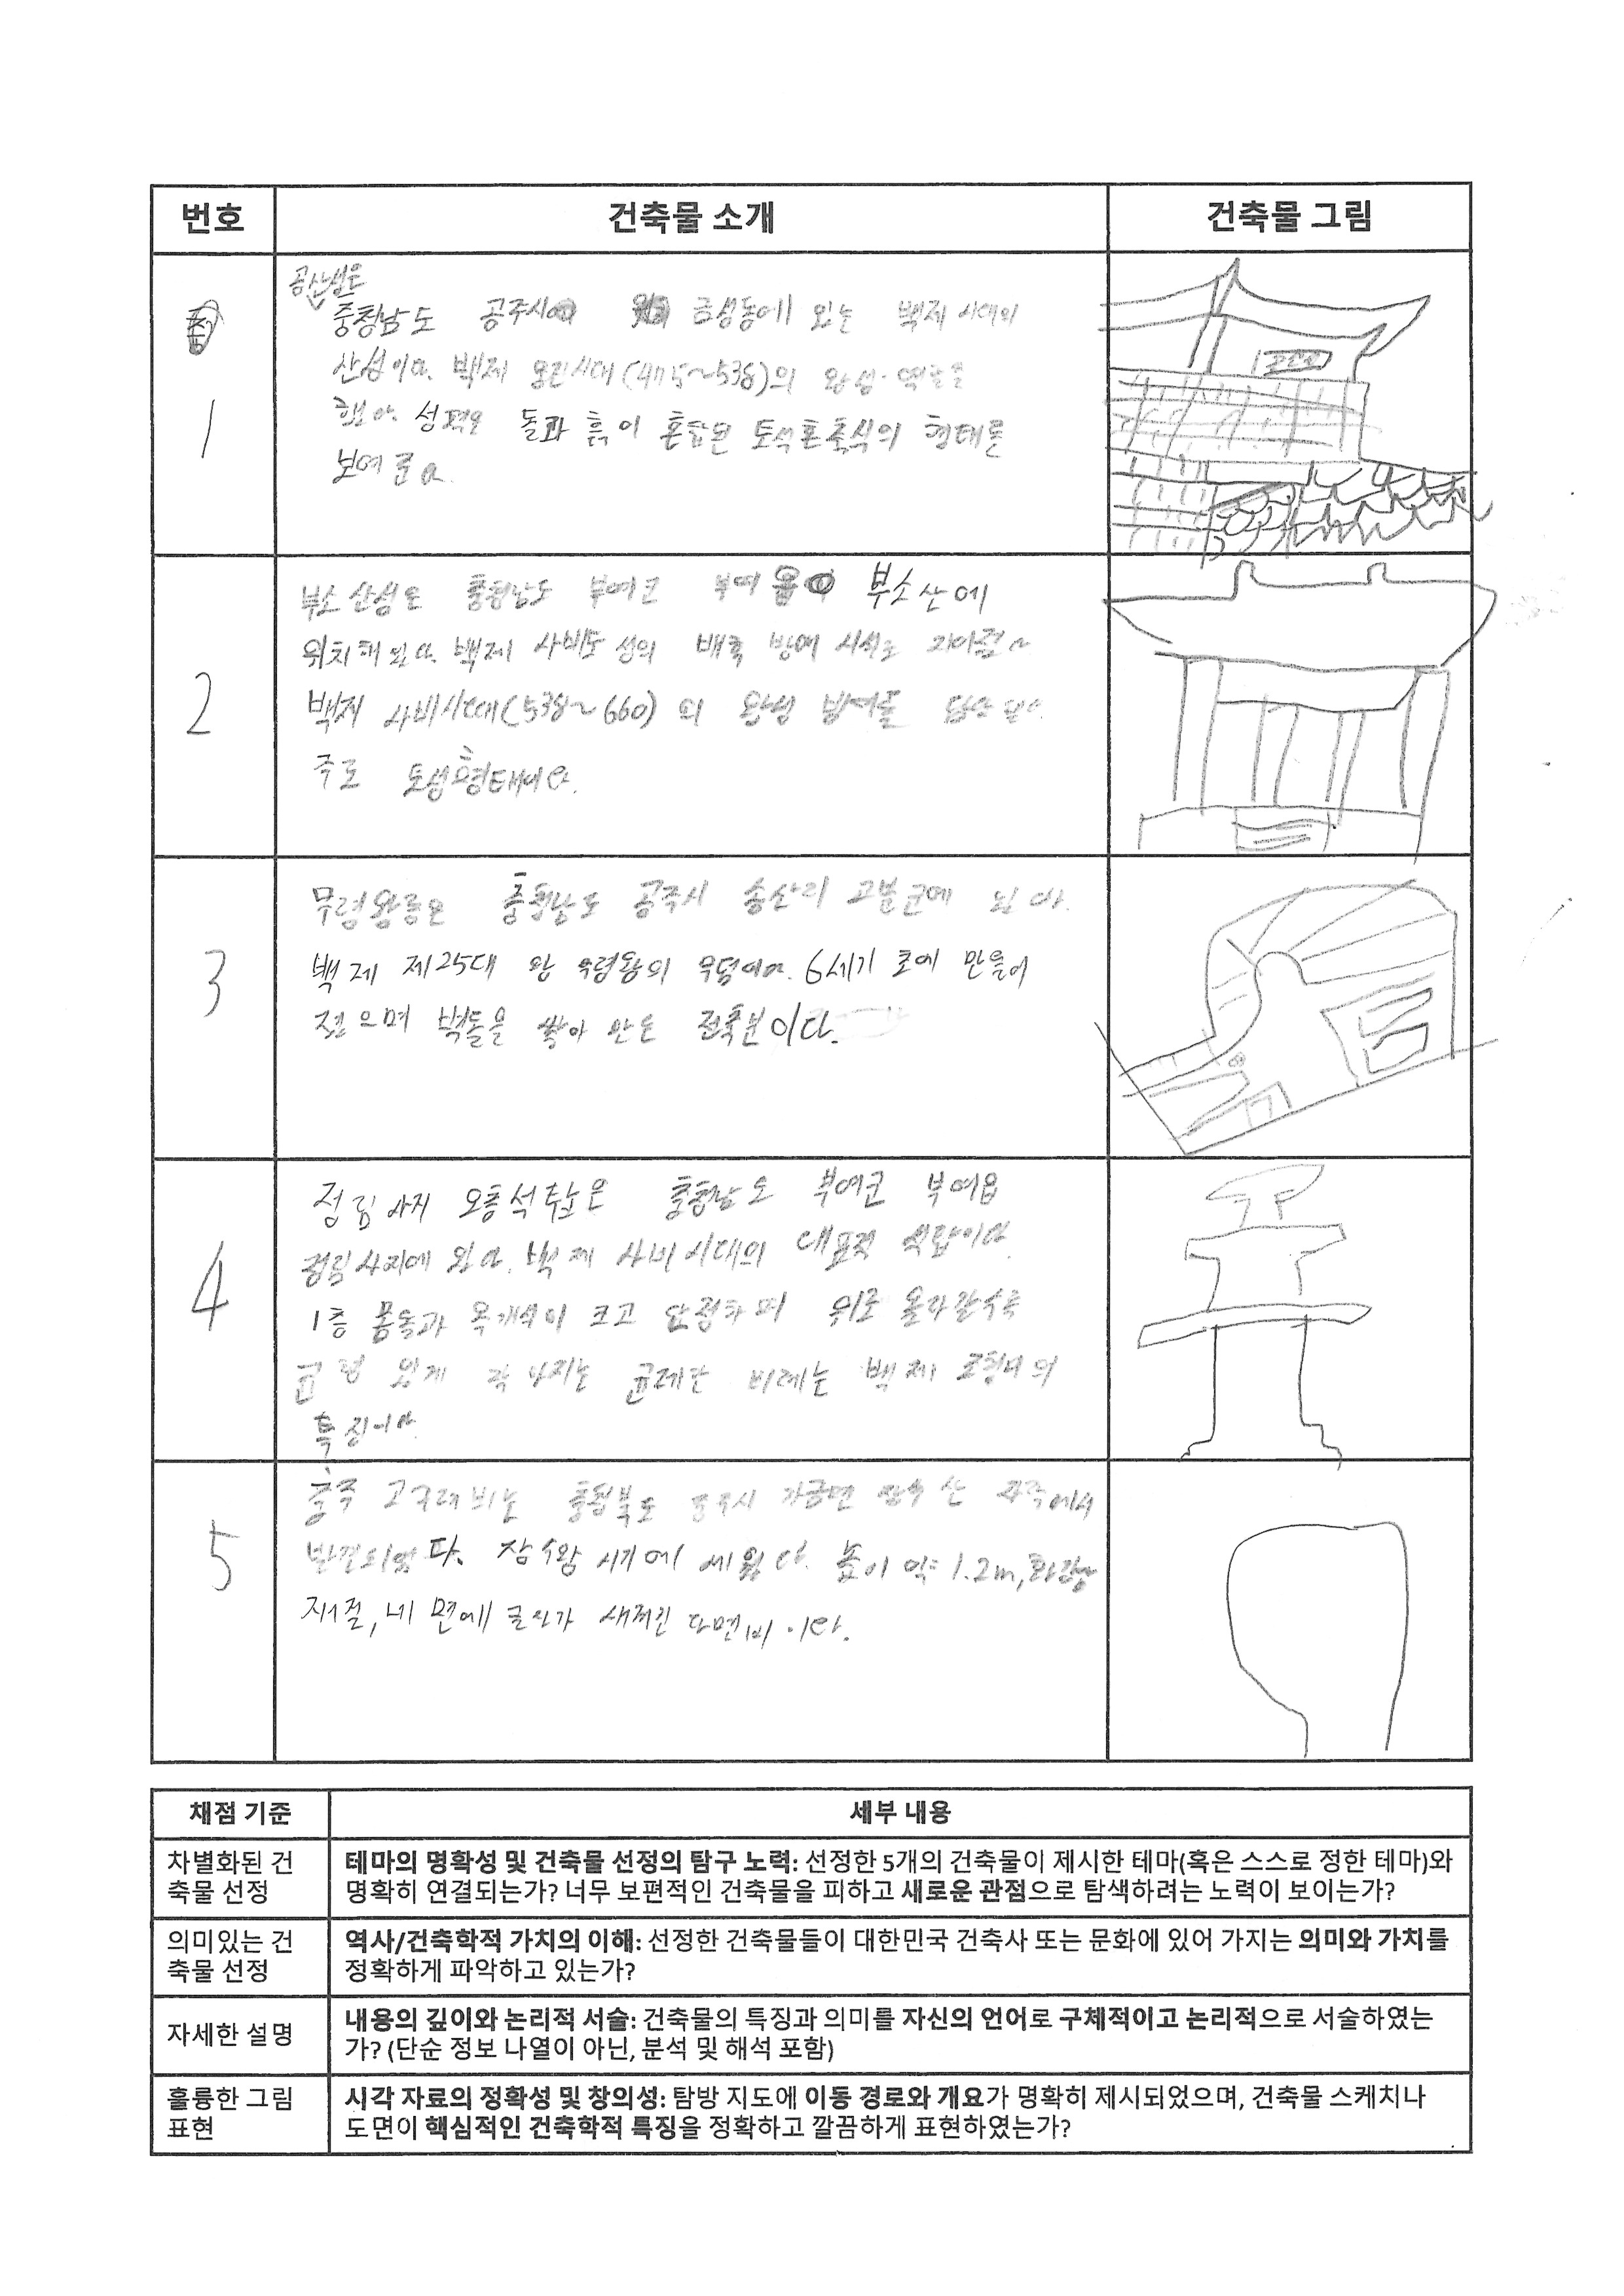 번호 건축물 소개 건축물 그림
공산성은
충청남도 공주시 금성동에 있는 백제 시대의
산성이다. 백제 웅진시대(475~538)의 왕성 역할을
했다. 성벽은 돌과 흙이 혼합된 토석혼축식의 형태를
보여준다.
1
부소산성은 충청남도 부여군 부여읍 부소산에
위치해 있다. 백제 사비도성의 배후 방어 시설로 지어졌다
백제 사비시대(538~660)의 왕성 방어를 담당했다.
주로 토성형태이다.
2
무령왕릉은 충청남도 공주시 송산리 고분군에 있다.
백제 제25대 왕 무령왕의 무덤이다. 6세기 초에 만들어
졌으며 벽돌을 쌓아 만든 전축분이다.
3
정림사지 오층석탑은 충청남도 부여군 부여읍
정림사지에 있다. 백제 사비시대의 대표적 석탑이다.
1층 몸돌과 옥개석이 크고 안정하며 위로 올라갈수록
균형 있게 작아지는 비례는 백제 의
특징이다.
4
충주 고구려비는 충청북도 충주시 가금면 에서
발견되었다. 장수왕 시기에 세웠다. 높이 약 1.2m, 화강암
재질, 네 면에 글씨가 새겨진 다면비이다.
5
채점 기준 세부 내용
차별화된 건
축물 선정
테마의 명확성 및 건축물 선정의 탐구 노력: 선정한 5개의 건축물이 제시한 테마(혹은 스스로 정한 테마)와
명확히 연결되는가? 너무 보편적인 건축물을 피하고 새로운 관점으로 탐색하려는 노력이 보이는가?
의미있는 건
축물 선정
역사/건축학적 가치의 이해: 선정한 건축물들이 대한민국 건축사 또는 문화에 있어 가지는 의미와 가치를
정확하게 파악하고 있는가?
자세한 설명
내용의 깊이와 논리적 서술: 건축물의 특징과 의미를 자신의 언어로 구체적이고 논리적으로 서술하였는
가? (단순 정보 나열이 아닌, 분석 및 해석 포함)
훌륭한 그림
표현
시각 자료의 정확성 및 창의성: 탐방 지도에 이동 경로와 개요가 명확히 제시되었으며, 건축물 스케치나
도면이 핵심적인 건축학적 특징을 정확하고 깔끔하게 표현하였는가?